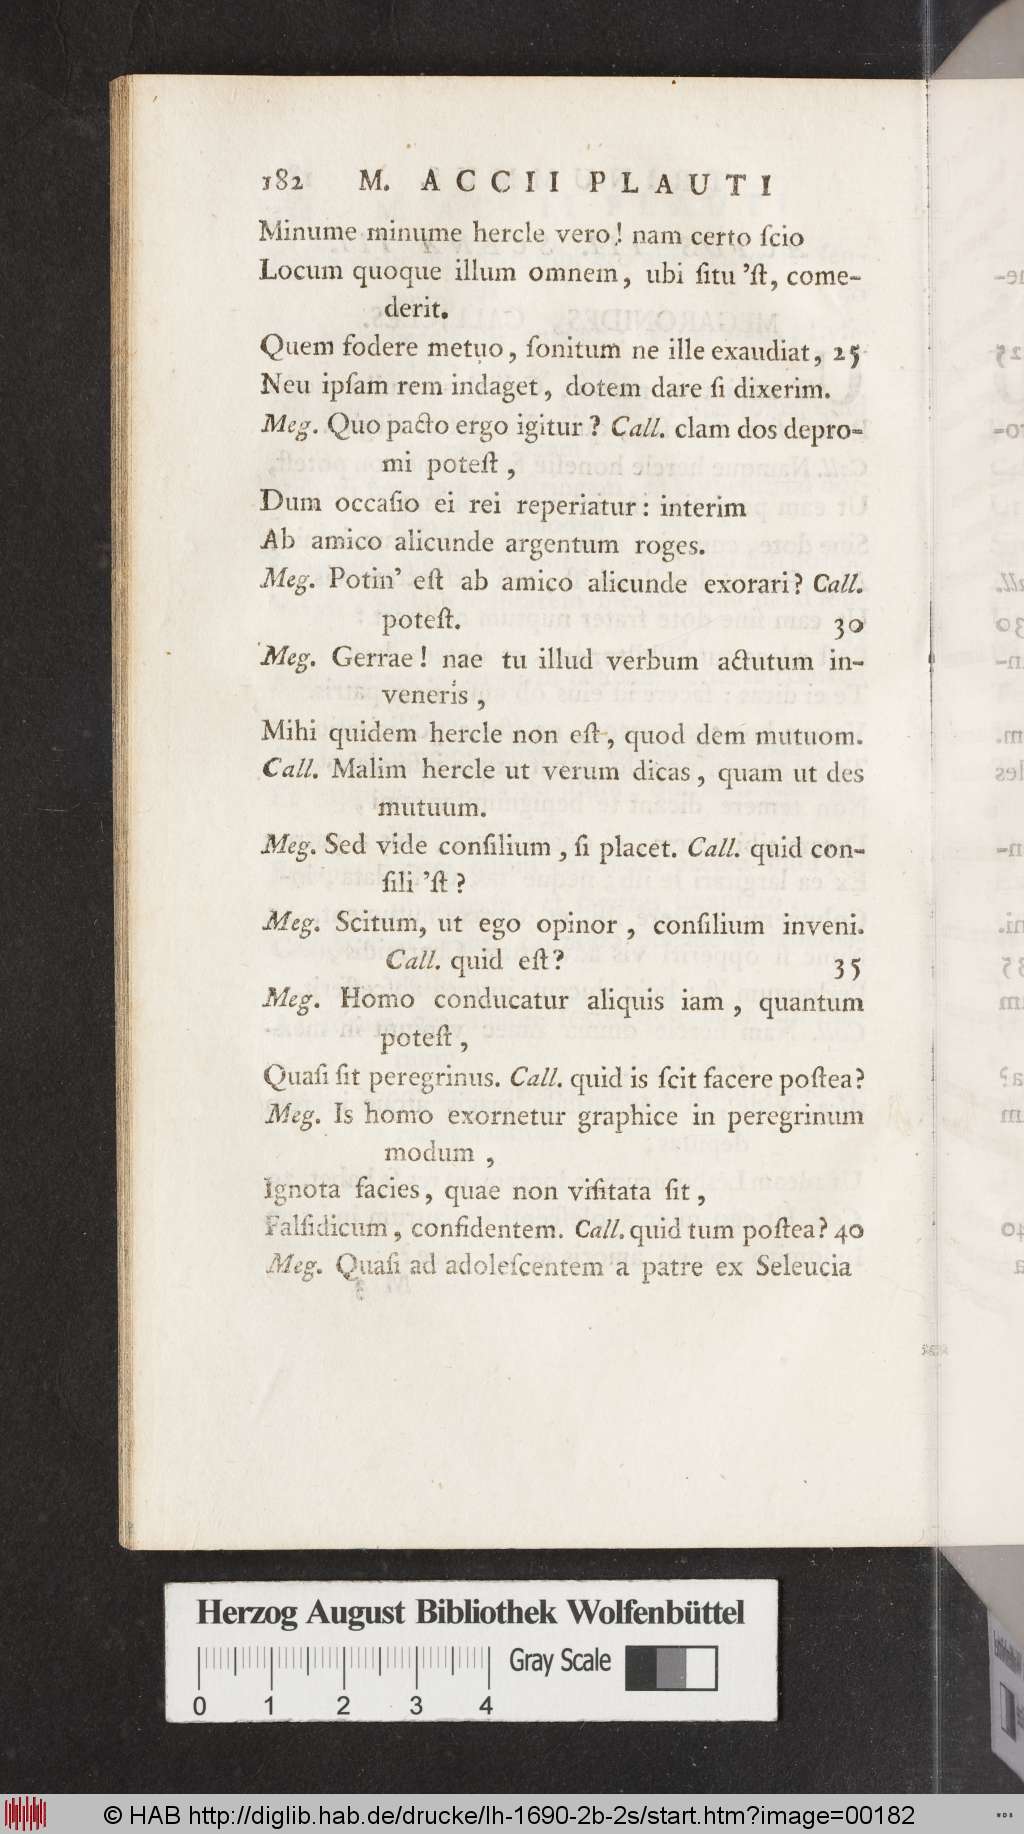 182 M. ACCII PLAUTI
Minume minume hercle vero! nam certo ſcio
Locum quoque illum omnem, ubi ſitu 'ſt, come-
derit.
Quem fodere metuo, ſonitum ne ille exaudiat, 25
Neu ipſam rem indaget, dotem dare ſi dixerim.
Meg. Quo pacto ergo igitur? Call. clam dos depro-
mi poteſt,
Dum occaſio ei rei reperiatur: interim
Ab amico alicunde argentum roges.
Meg. Potin' eſt ab amico alicunde exorari? Call.
poteſt. 30
Meg. Gerrae! nae tu illud verbum actutum in-
veneris,
Mihi quidem hercle non eſt, quod dem mutuom.
Call. Malim hercle ut verum dicas, quam ut des
mutuum.
Meg. Sed vide conſilium, ſi placet. Call. quid con-
ſili 'ſt?
Meg. Scitum, ut ego opinor, conſilium inveni.
Call. quid eſt? 35
Meg. Homo conducatur aliquis iam, quantum
poteſt,
Quaſi ſit peregrinus. Call. quid is ſcit facere poſtea?
Meg. Is homo exornetur graphice in peregrinum
modum,
Ignota facies, quae non viſitata ſit,
Falſidicum, confidentem. Call. quid tum poſtea? 40
Meg. Quaſi ad adoleſcentem a patre ex Seleucia
Herzog August Bibliothek Wolfenbüttel
Gray Scale
0 1 2 3 4
© HAB http://diglib.hab.de/drucke/lh-1690-2b-2s/start.htm?image=00182